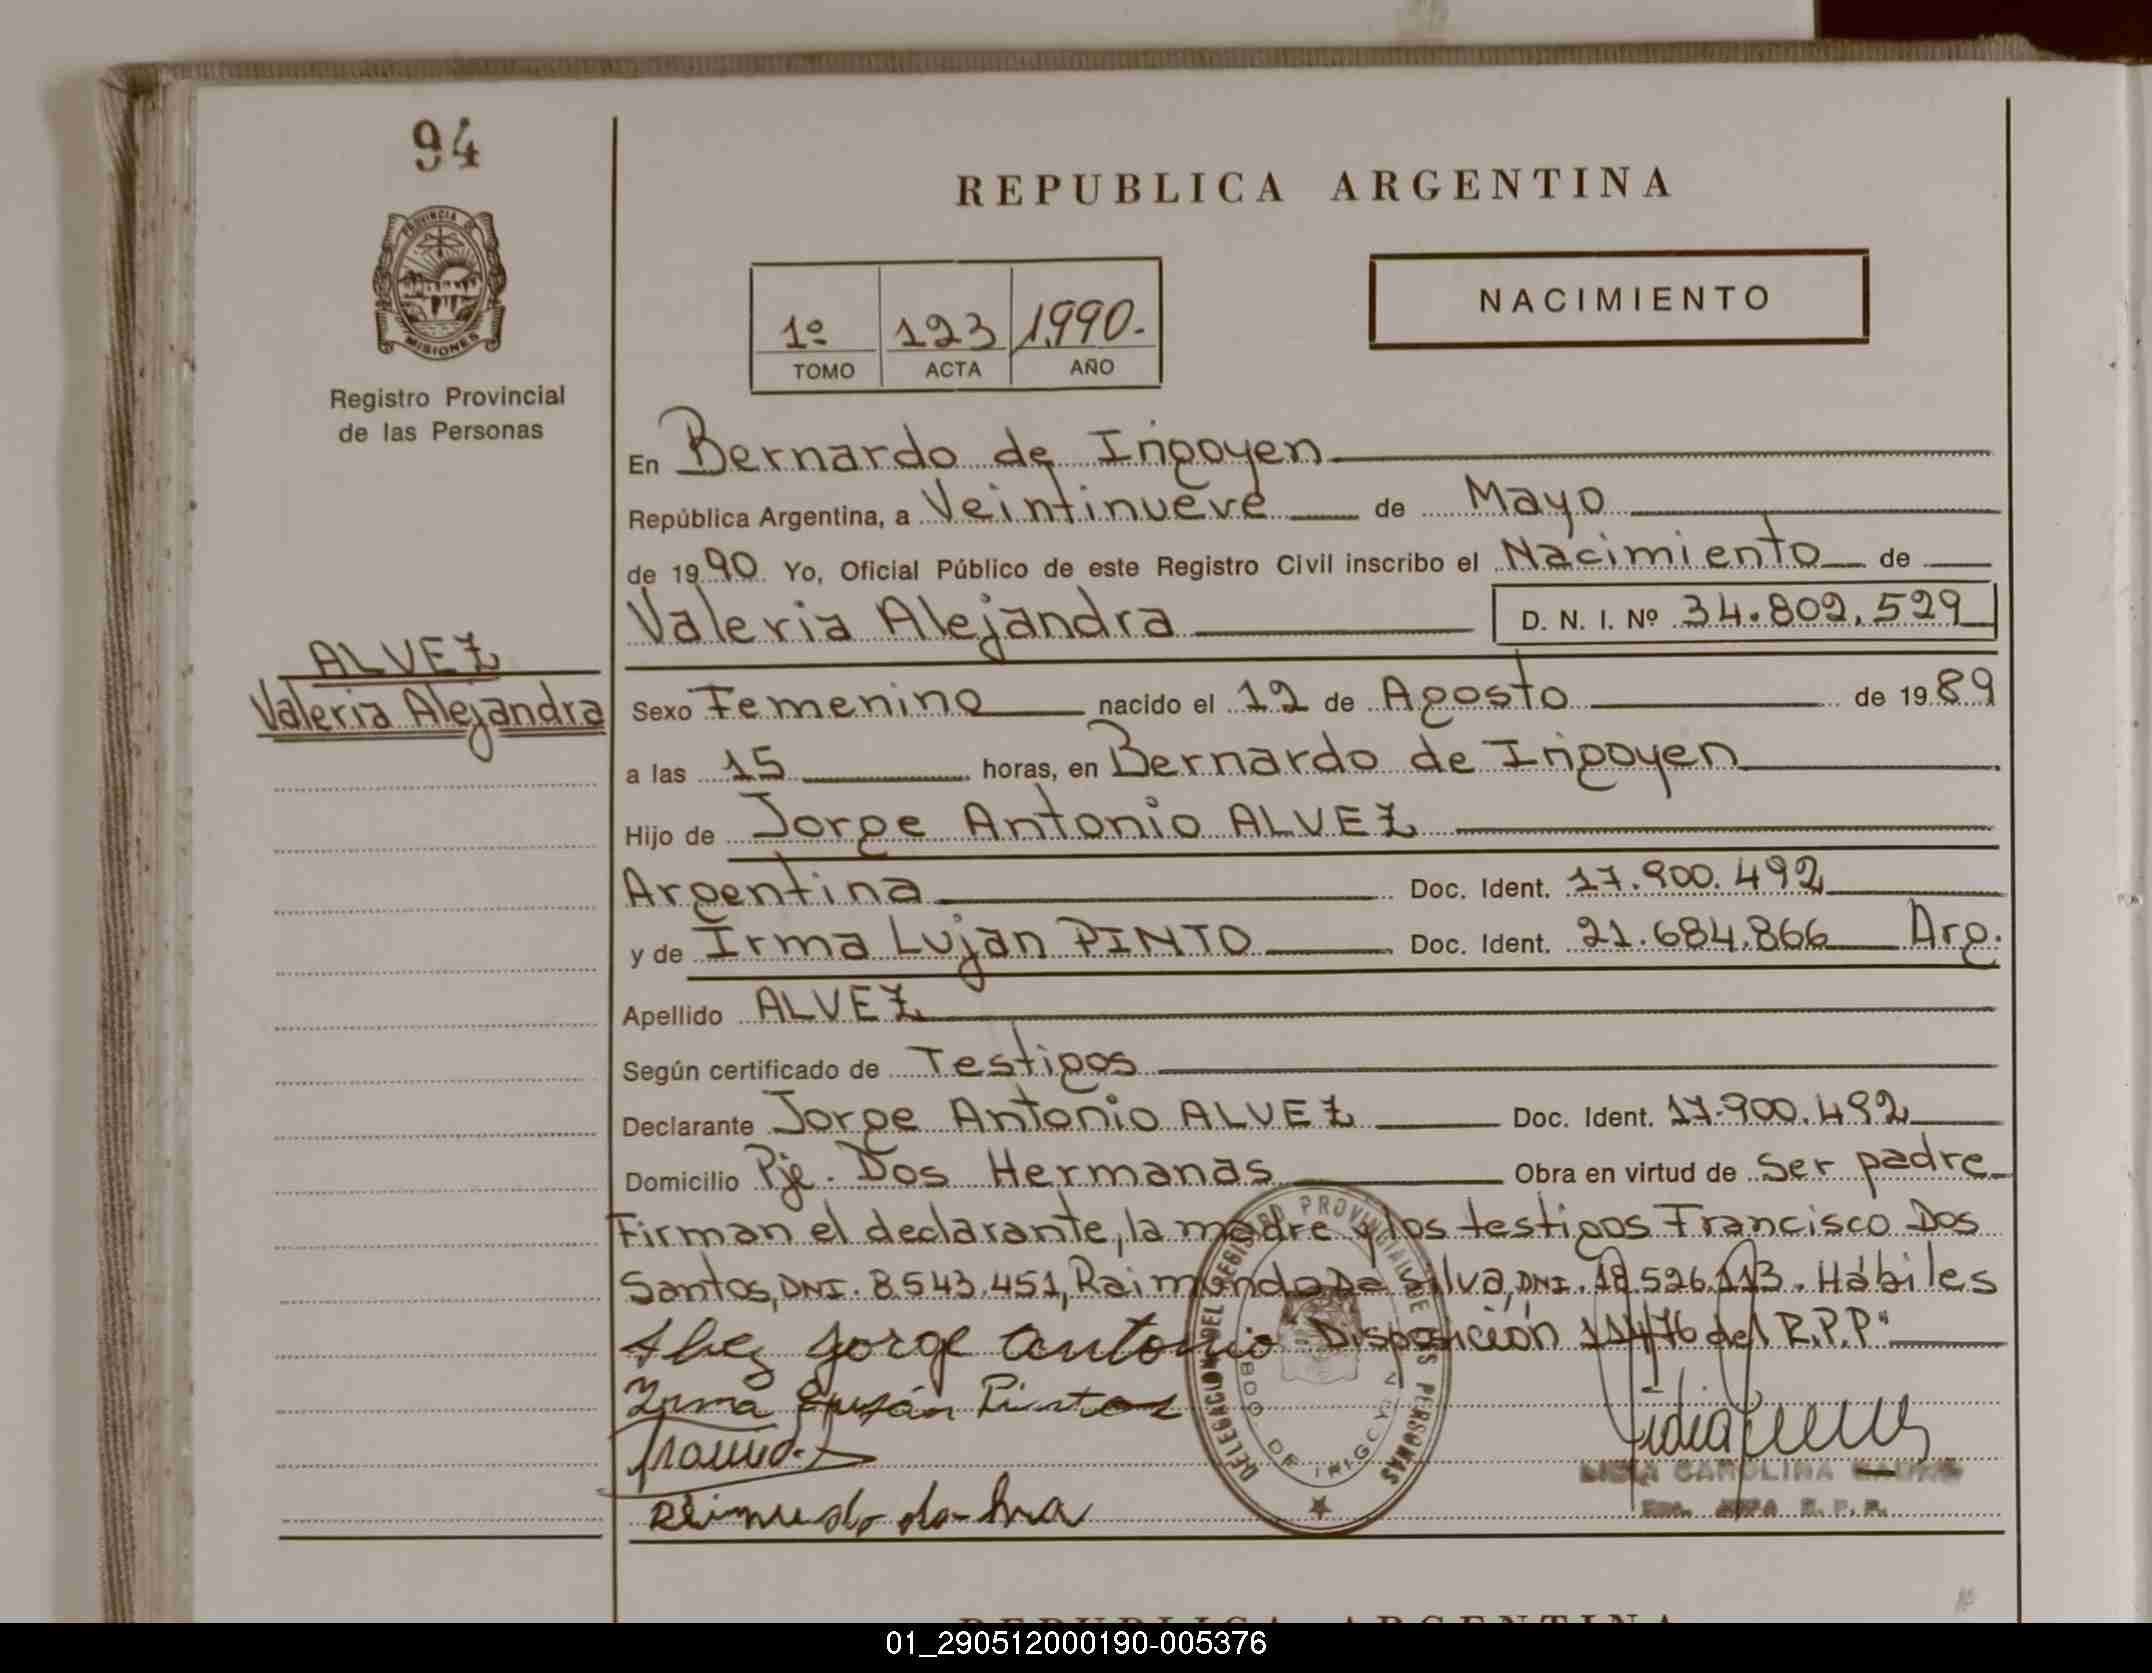 94
REPUBLICA ARGENTINA
PROVINCIA DE
MISIONES
NACIMIENTO
1º 123 1990.-
TOMO ACTA AÑO
Registro Provincial
de las Personas
En Bernardo de Irigoyen
República Argentina, a Veintinueve de Mayo
de 1990 Yo, Oficial Público de este Registro Civil inscribo el Nacimiento de
Valeria Alejandra D. N. I. Nº 34.802.529
ALVEZ
Valeria Alejandra
Sexo Femenino nacido el 12 de Agosto de 1989
a las 15 horas, en Bernardo de Irigoyen
Hijo de Jorge Antonio ALVEZ
Argentina Doc. Ident. 17.900.492
y de Irma Lujan PINTO Doc. Ident. 21.684.866 Arg.
Apellido ALVEZ
Según certificado de Testigos
Declarante Jorge Antonio ALVEZ Doc. Ident. 17.900.492
Domicilio Pje. Dos Hermanas Obra en virtud de ser padre
Firman el declarante, la madre y los testigos Francisco Dos
Santos, DNI. 8543.451, Raimundo Da Silva, DNI. 18.526.113. Hábiles
Alvez Jorge Antonio Disposición 11/76 del R.P.P."
Irma Luján Pinto
DELEGACION DEL REGISTRO PROVINCIAL DE LAS PERSONAS
BDO DE IRIGOYEN
LIDIA CAROLINA
R. P. P.
REPUBLICA ARGENTINA
01_290512000190-005376